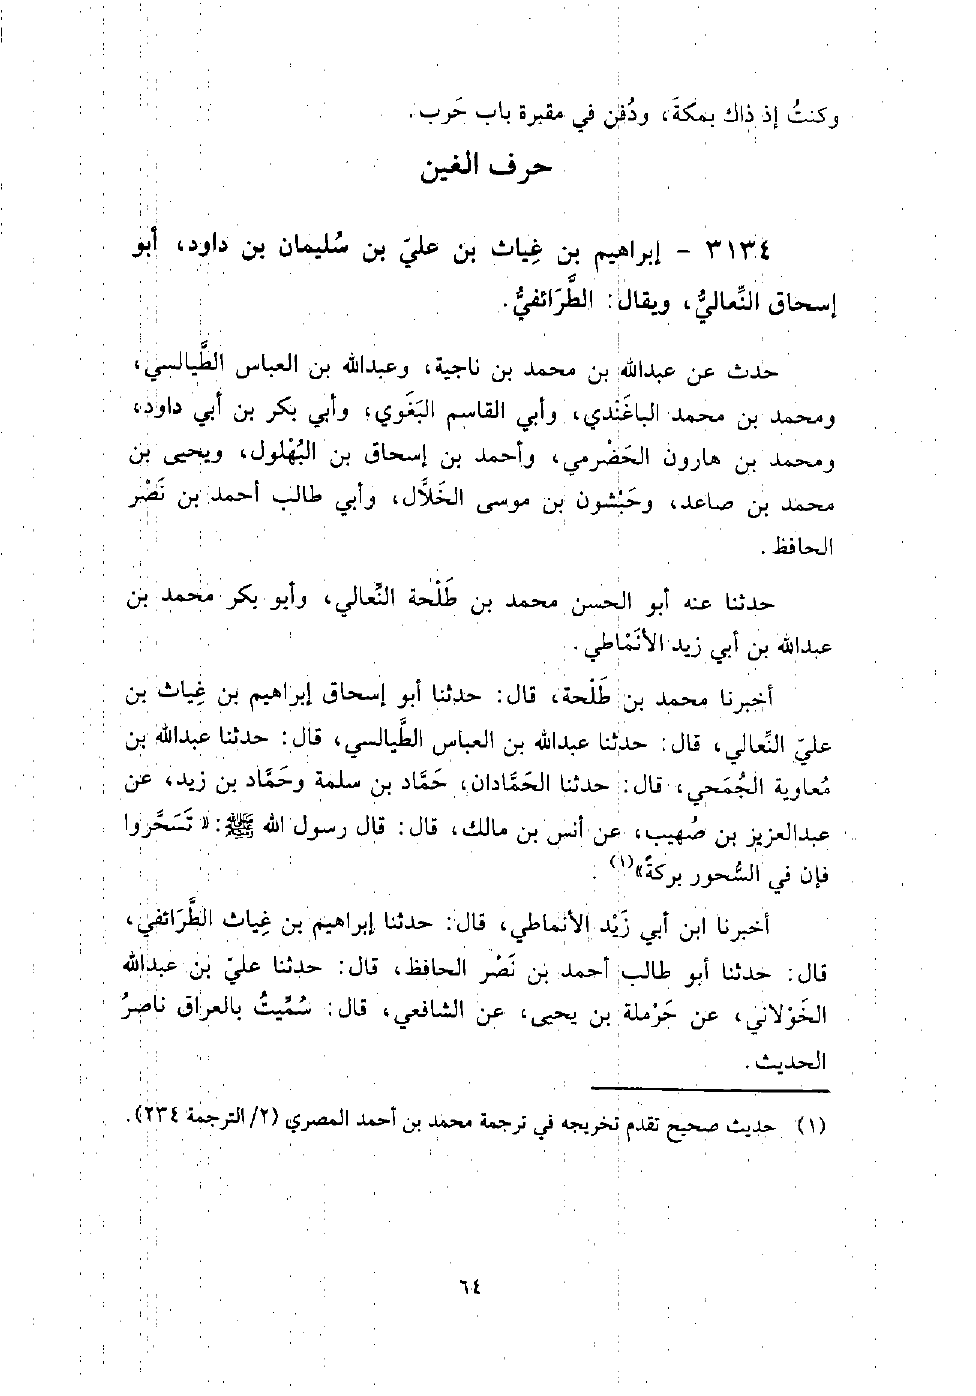 وكنتُ إذ ذاك بمكةَ، ودُفن في مقبرة باب حَرب.
حرف الغين
٣١٣٤ - إبراهيم بن غِياث بن عليّ بن سُليمان بن داود، أبو
إسحاق النِّعاليُّ، ويقال: الطَّرَائفيُّ.
حدث عن عبدالله بن محمد بن ناجية، وعبدالله بن العباس الطَّيالسي،
ومحمد بن محمد الباغَندي، وأبي القاسم البَغَوي، وأبي بكر بن أبي داود،
ومحمد بن هارون الحَضْرمي، وأحمد بن إسحاق بن البُهْلول، ويحيى بن
محمد بن صاعد، وحَبْشون بن موسى الخَلَّال، وأبي طالب أحمد بن نَصْر
الحافظ.
حدثنا عنه أبو الحسن محمد بن طَلْحة النِّعالي، وأبو بكر محمد بن
عبدالله بن أبي زيد الأنْمَاطي.
أخبرنا محمد بن طَلْحة، قال: حدثنا أبو إسحاق إبراهيم بن غِياث بن
عليّ النِّعالي، قال: حدثنا عبدالله بن العباس الطَّيالسي، قال: حدثنا عبدالله بن
مُعاوية الجُمَحي، قال: حدثنا الحَمَّادان، حَمَّاد بن سلمة وحَمَّاد بن زيد، عن
عبدالعزيز بن صُهيب، عن أنس بن مالك، قال: قال رسول الله ﷺ: «تَسَحَّروا
فإن في السُّحور بركةً»(١).
أخبرنا ابن أبي زَيْد الأنماطي، قال: حدثنا إبراهيم بن غِياث الطَّرَائفي،
قال: حدثنا أبو طالب أحمد بن نَصْر الحافظ، قال: حدثنا عليّ بن عبدالله
الخَوْلاني، عن حَرْملة بن يحيى، عن الشافعي، قال: سُمِّيتُ بالعراق ناصرُ
الحديث.
(١) حديث صحيح تقدم تخريجه في ترجمة محمد بن أحمد المصري (٢/ الترجمة ٢٣٤).
٦٤